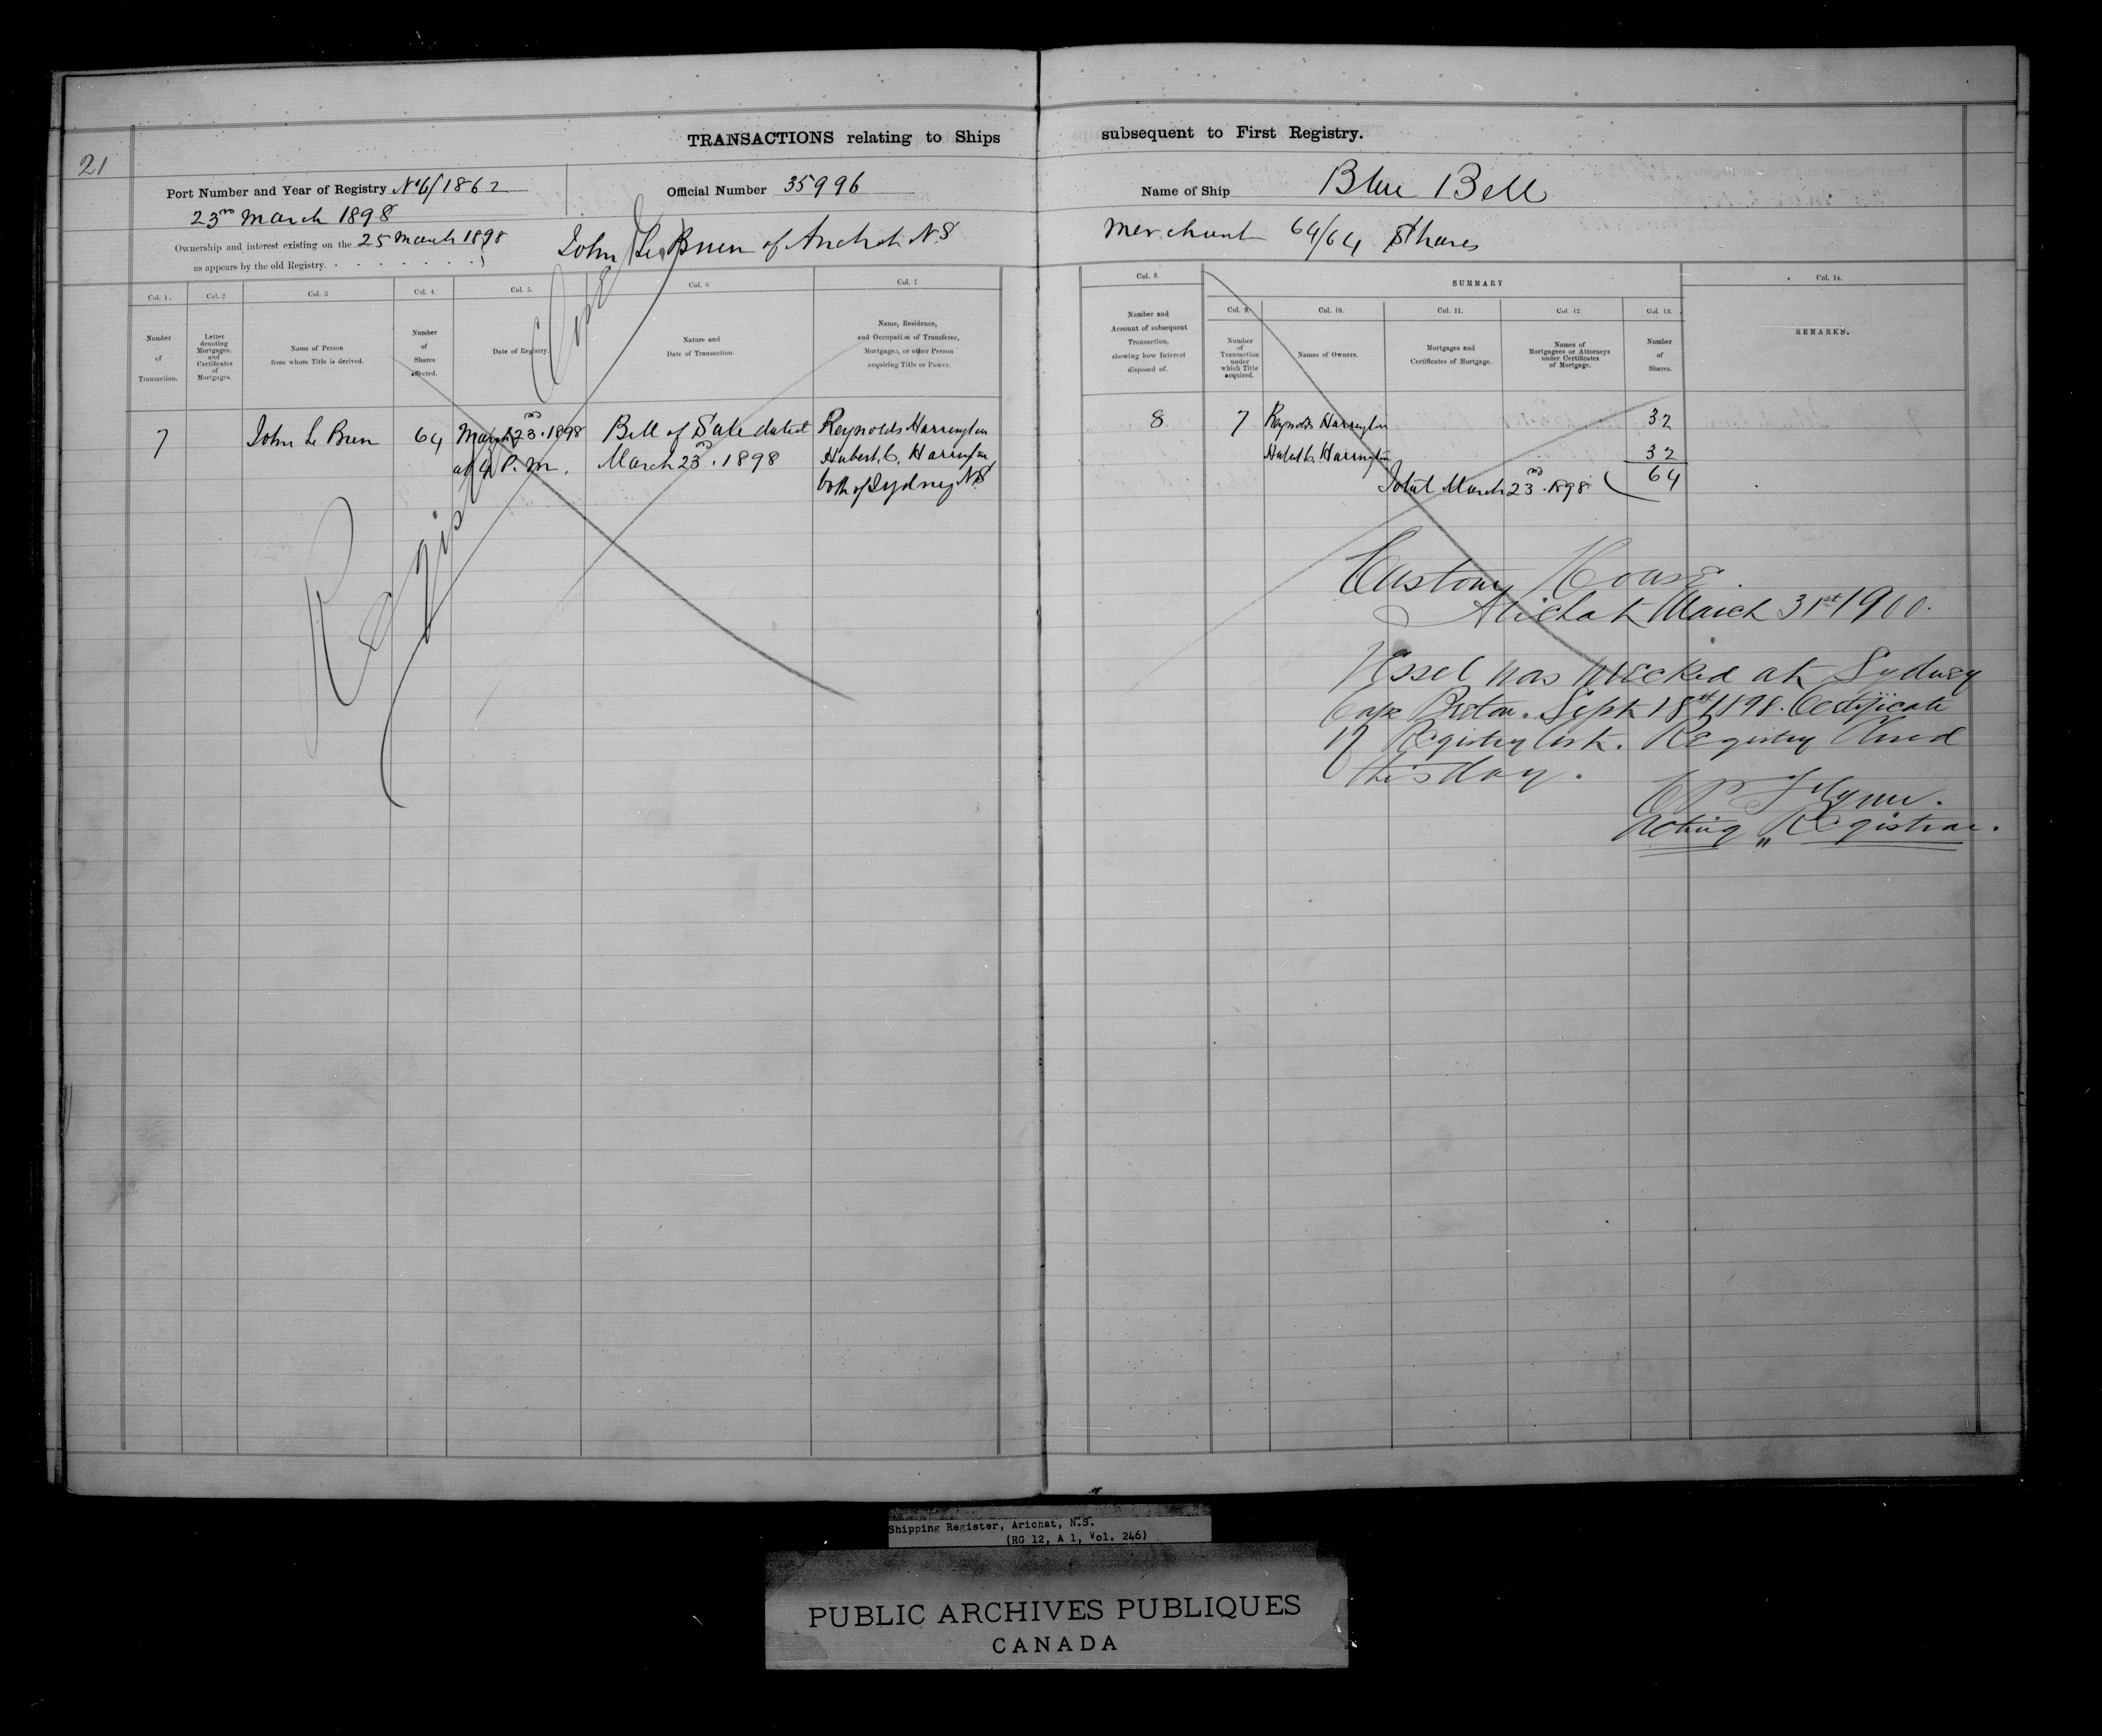 21
TRANSACTIONS relating to Ships subsequent to First Registry.
Port Number and Year of Registry No 6/1862
Official Number 35996
Name of Ship Blue Bell
23rd March 1898
Ownership and interest existing on the 25 March 1898
as appears by the old Registry.
John Le Brun of Arichat N.S merchant 64/64 Shares
Col. 1.
Number
of
Transaction.
Col. 2
Letter
denoting
Mortgages,
and
Certificates
of
Mortgages.
Col. 3
Name of Person
from whom Title is derived.
Col. 4.
Number
of
Shares
affected.
Col. 5.
Date of Registry.
Col. 6
Nature and
Date of Transaction.
Col. 7
Name, Residence,
and Occupation of Transferee,
Mortgagee, or other Person
acquiring Title or Power.
Col. 8.
Number and
Account of subsequent
Transaction,
showing how Interest
disposed of.
SUMMARY
Col. 9.
Number
of
Transaction
under
which Title
acquired.
Col. 10.
Names of Owners.
Col. 11.
Mortgages and
Certificates of Mortgage.
Col. 12
Names of
Mortgagees or Attorneys
under Certificates
of Mortgage.
Col. 13.
Number
of
Shares.
Col. 14.
REMARKS.
7 John Le Brun 64 March 23rd 1898 Bill of Sale dated Reynolds Harrington
at 4 P.m. March 23rd. 1898 Hubert C. Harrington
both of Sydney N.S
8 7 Reynolds Harrington 32
Hubert C. Harrington 32
Total March 23rd. 1898 64
Registry Closed
Customs House
Arichat March 31st 1900.
Vessel was wrecked at Sydney
Cape Breton. Sept 18th 1898. Certificate
of Registry lost. Registry Closed
this day.
C P Flynn.
Acting Registrar.
Shipping Register, Arichat, N.S.
(RG 12, A 1, Vol. 246)
PUBLIC ARCHIVES PUBLIQUES
CANADA